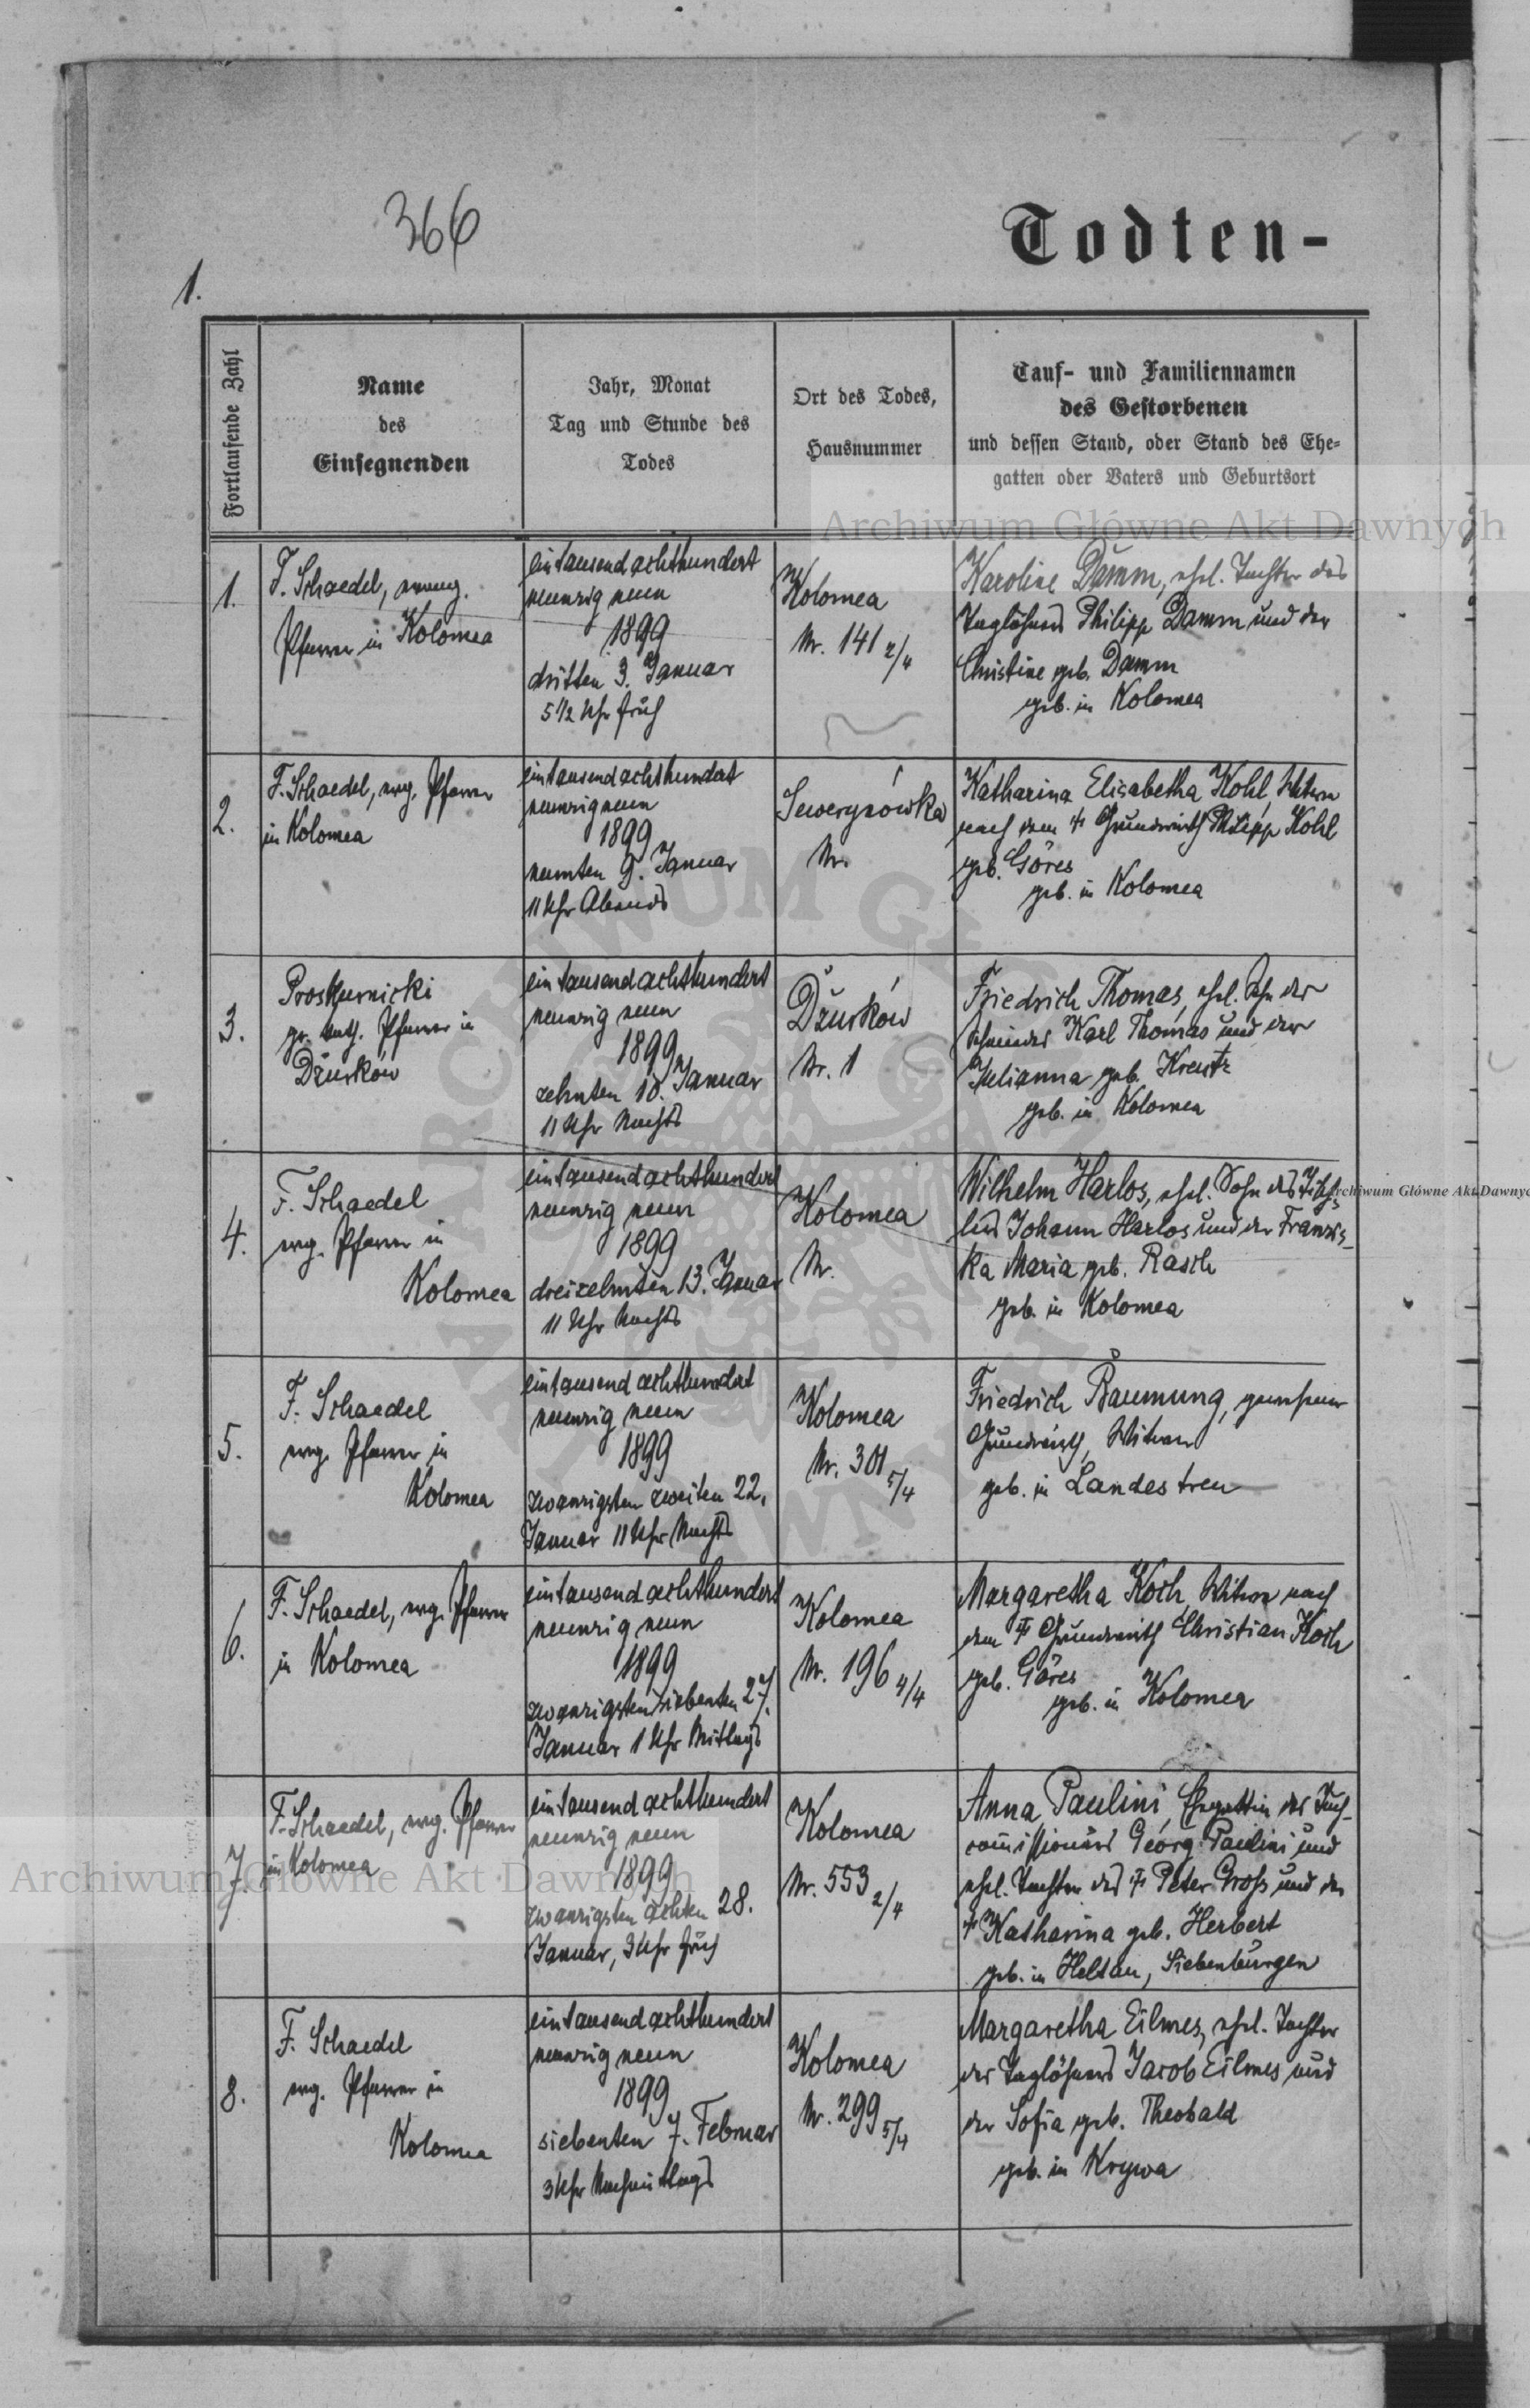 366
1.
Todten-
Fortlaufende Zahl
Name
des
Einsegnenden
Jahr, Monat
Tag und Stunde des
Todes
Ort des Todes,
Hausnummer
Tauf- und Familiennamen
des Gestorbenen
und dessen Stand, oder Stand des Ehe-
gatten oder Vaters und Geburtsort
1.
F. Schaedel, evang.
Pfarrer in Kolomea
eintausendachthundert
neunzig neun
1899
dritten 3. Januar
5 1/2 Uhr früh
Kolomea
Nr. 141 2/4
Karoline Damm, ehel. Tochter des
Taglöhners Philipp Damm und der
Christine geb. Damm
geb. in Kolomea
2.
F. Schaedel, evg. Pfarrer
in Kolomea
eintausendachthundert
neunzigneun
1899
neunten 9. Januar
11 Uhr Abends
Sewerynówka
Nr.
Katharina Elisabetha Kohl, Witwe
nach dem † Grundwirth Philipp Kohl
geb. Göres
geb. in Kolomea
3.
Proskurnicki
gr. kath. Pfarrer in
Dżurków
eintausendachthundert
neunzig neun
1899
zehnten 10. Januar
11 Uhr Nachts
Dżurków
Nr. 1
Friedrich Thomas, ehel. Sohn des
Schmiedes Karl Thomas und der
Julianna geb. Kreutz
geb. in Kolomea
4.
F. Schaedel
evg. Pfarrer in
Kolomea
eintausendachthundert
neunzig neun
1899
dreizehnten 13. Januar
11 Uhr Nachts
Kolomea
Nr.
Wilhelm Harlos, ehel. Sohn des Tisch-
lers Johann Harlos und der Franzis-
ka Maria geb. Rasch
geb. in Kolomea
5.
F. Schaedel
evg. Pfarrer in
Kolomea
eintausend achthundert
neunzig neun
1899
zwanzigsten zweiten 22.
Januar 11 Uhr Nachts
Kolomea
Nr. 301 5/4
Friedrich Baumung, gewesener
Grundwirth, Witwer
geb. in Landestreu
6.
F. Schaedel, evg. Pfarrer
in Kolomea
eintausendachthundert
neunzig neun
1899
zwanzigsten siebenten 27.
Januar 1 Uhr Mittags
Kolomea
Nr. 196 4/4
Margaretha Koch, Witwe nach
dem † Grundwirth Christian Koch
geb. Göres
geb. in Kolomea
7.
F. Schaedel, evg. Pfarrer
in Kolomea
eintausend achthundert
neunzig neun
1899
zwanzigsten achten 28.
Januar, 3 Uhr früh
Kolomea
Nr. 553 2/4
Anna Paulini, Ehegattin des Tuch-
comissionärs Georg Paulini und
ehel. Tochter des † Peter Gross und der
† Katharina geb. Herbert
geb. in Heltau, Siebenbürgen
8.
F. Schaedel
evg. Pfarrer in
Kolomea
eintausend achthundert
neunzig neun
1899
siebenten 7. Februar
3 Uhr Nachmittags
Kolomea
Nr. 299 5/4
Margaretha Eilmes, ehel. Tochter
des Taglöhners Jacob Eilmes und
der Sofia geb. Theobald
geb. in Krywa
Archiwum Główne Akt Dawnych
Archiwum Główne Akt Dawnych
Archiwum Główne Akt Dawnyc